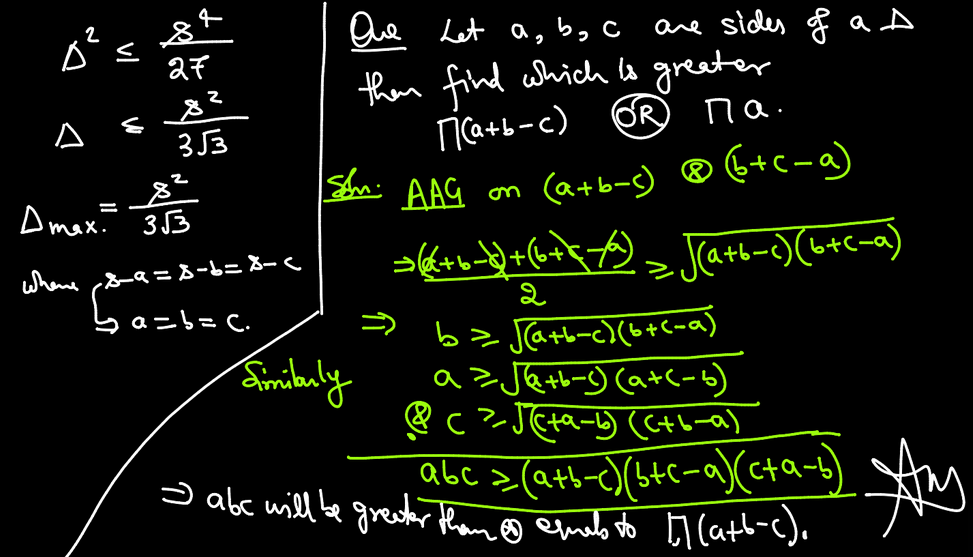 Δ² ≤ s⁴/27
Δ ≤ s²/3√3
Δmax. = s²/3√3
where s-a = s-b = s-c
↳ a = b = c.
Que Let a, b, c are sides of a Δ
then find which is greater
∏(a+b-c) OR ∏a.
Soln: AAG on (a+b-c) & (b+c-a)
⇒ (a+b-c)+(b+c-a)/2 ≥ √(a+b-c)(b+c-a)
⇒ b ≥ √(a+b-c)(b+c-a)
Similarly a ≥ √(a+b-c)(a+c-b)
& c ≥ √(c+a-b)(c+b-a)
abc ≥ (a+b-c)(b+c-a)(c+a-b)
⇒ abc will be greater than & equals to ∏(a+b-c).